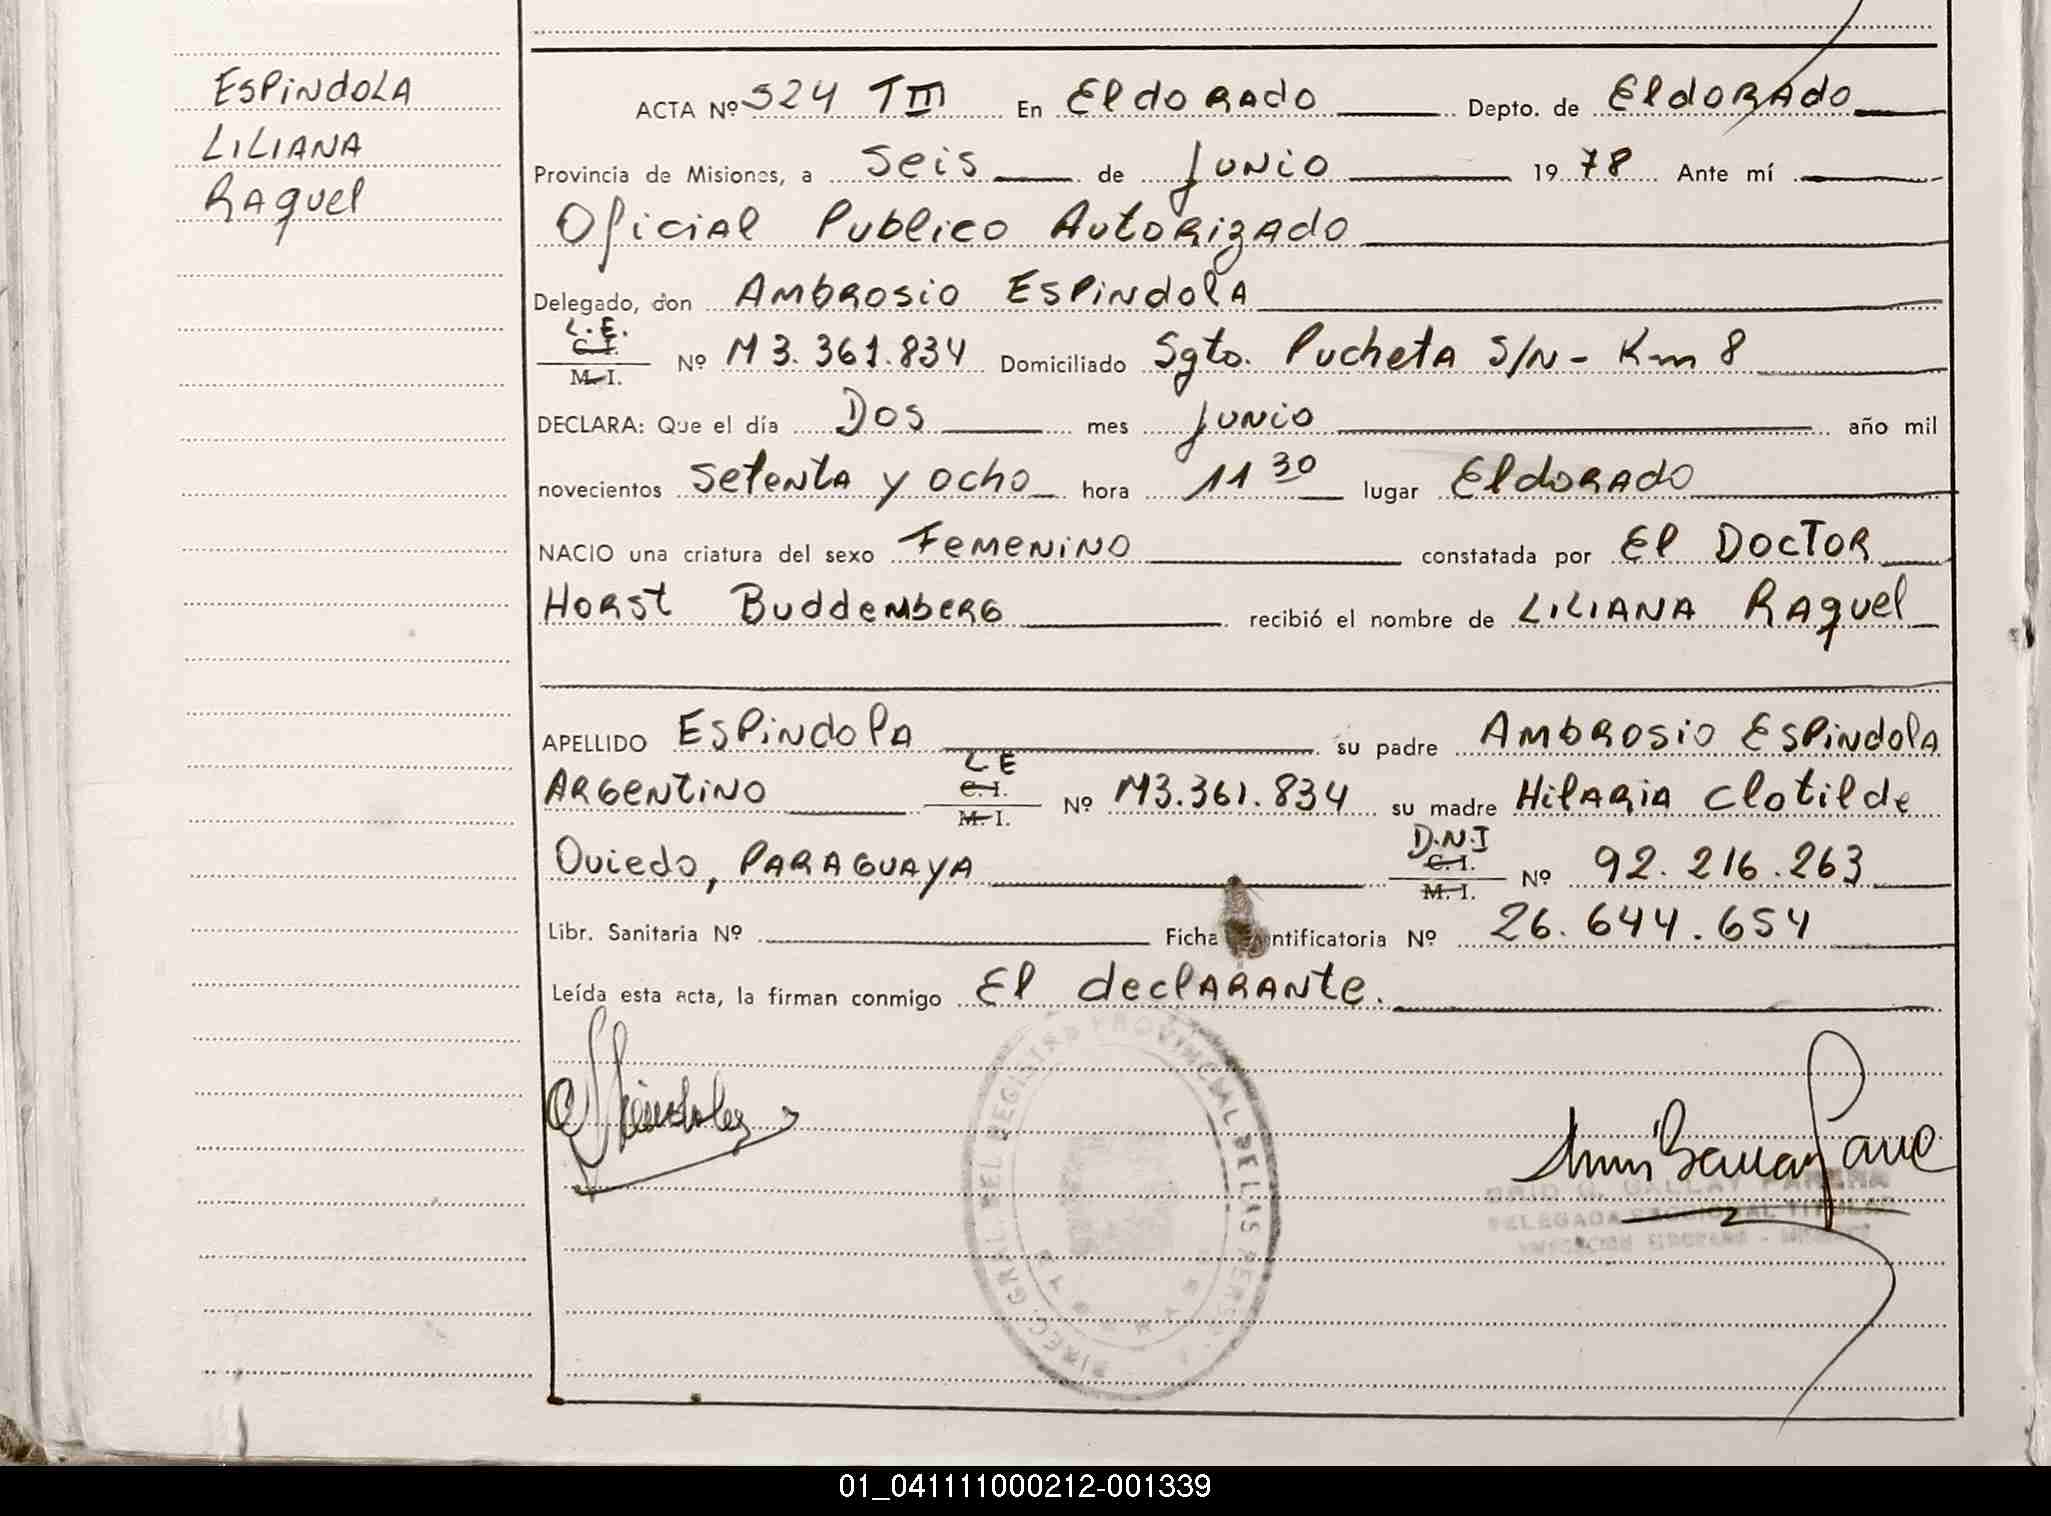 ESPINDOLA
LILIANA
RAquel
ACTA Nº 524 TIII En EldoRAdo Depto. de EldoRAdo
Provincia de Misiones, a seis de junio 1978 Ante mí
Oficial Publico Autorizado
Delegado, don Ambrosio Espindola
L.E.
C.I.
M.I. Nº M3.361.834 Domiciliado Sgto. Pucheta S/N - Km 8
DECLARA: Que el día Dos mes junio año mil
novecientos setenta y ocho hora 11 30 lugar Eldorado
NACIO una criatura del sexo Femenino constatada por El Doctor
Horst Buddemberg recibió el nombre de LILIANA RAquel
APELLIDO Espindola su padre Ambrosio Espindola
Argentino L E
C.I.
M.I. Nº M3.361.834 su madre Hilaria Clotilde
Oviedo, PARAGUAYA D.N.I
C.I.
M.I. Nº 92.216.263
Libr. Sanitaria Nº Ficha Identificatoria Nº 26.644.654
Leída esta acta, la firman conmigo El declarante.
DIREC. GRAL. DEL REGISTRO PROVINCIAL DE LAS PERSONAS
DELEGADA SECCIONAL TITULAR
01_041111000212-001339